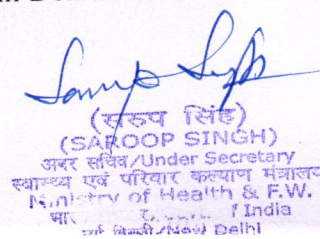 (सरुप सिंह)
(SAROOP SINGH)
अवर सचिव/Under Secretary
स्वास्थ्य एवं परिवार कल्याण मंत्रालय
Ministry of Health & F.W.
India
नई दिल्ली/New Delhi